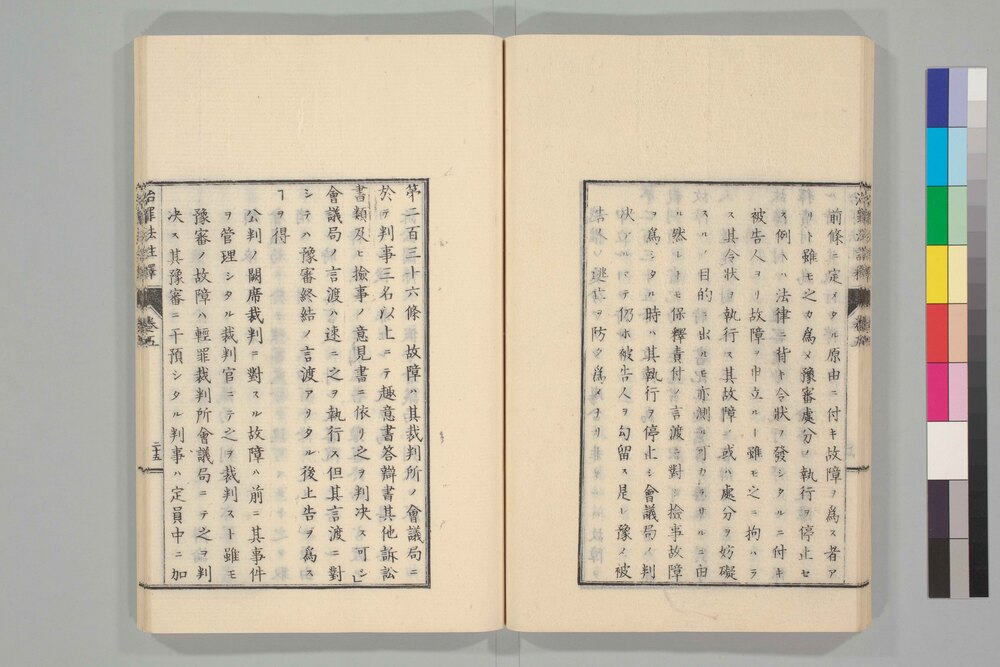 前條ニ定メタル原由ニ付キ故障ヲ為ス者ア
リト雖モ之カ為メ豫審處分ノ執行ヲ停止セ
ス例ヘハ法律ニ背キ令狀ヲ發シタルニ付キ
被告人ヨリ故障ヲ申立ルー雖モ之ニ拘ハラ
ス其令狀ヲ執行ス其故障ノ或ハ處分ヲ妨礙
スルノ目的ニ出ルモ亦測ル可カラサルニ由
ル然レトモ保釋責付ノ言渡ニ對シ撿事故障
ヲ為シタル時ハ其執行ヲ停止シ會議局ノ判
决アルマテ仍ホ被告人ヲ勾留ス是レ豫メ被
告人ノ逃亡ヲ防ク為メナリ
第二百三十六條 故障ハ其裁判所ノ會議局ニ
於テ判事三名以上ニテ趣意書答辯書其他訴訟
書類及ヒ撿事ノ意見書ニ依リ之ヲ判决ス可シ
會議局ノ言渡ハ速ニ之ヲ執行ス但其言渡ニ對
シテハ豫審終結ノ言渡アリタル後上告ヲ為ス
ヿヲ得
公判ノ闕席裁判ニ對スル故障ハ前ニ其事件
ヲ管理シタル裁判官ニテ之ヲ裁判スト雖モ
豫審ノ故障ハ輕罪裁判所會議局ニテ之ヲ判
决ス其豫審ニ干預シタル判事ハ定員中ニ加
治罪法註釋 卷五
二十五